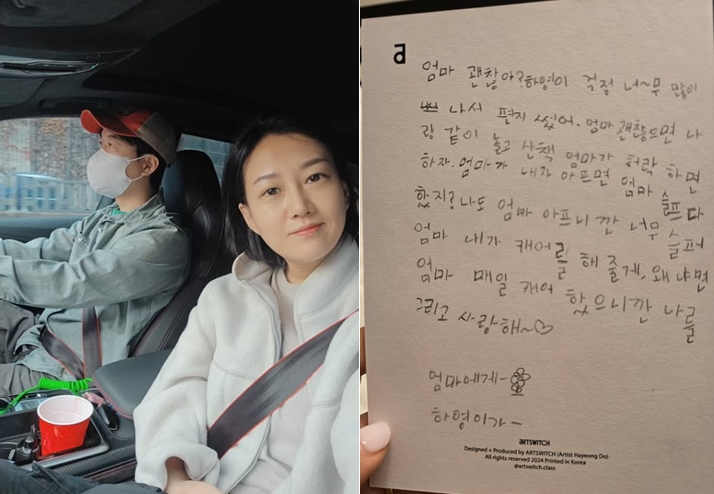 엄마 괜찮아? 하영이 걱정 너~무 많이
나서 편지 썼어. 엄마 괜찮으면 나
랑 같이 놀고 산책 엄마가 허락 하면
하자. 엄마가 내가 아프면 엄마 슬프다
했지? 나도 엄마 아프니깐 너무 슬퍼
엄마 내가 캐어를 해 줄게, 왜냐면
엄마 매일 캐어 했으니깐 나를
그리고 사랑해~♡
엄마에게-
하영이가-
ARTSWITCH
Designed + Produced by ARTSWITCH (Artist Hayeong Do)
All rights reserved 2024 Printed in Korea
@artswitch.class